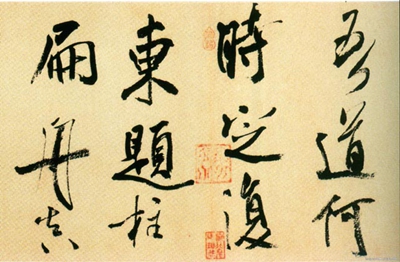 吾道何
時定復
東題柱
扁舟真